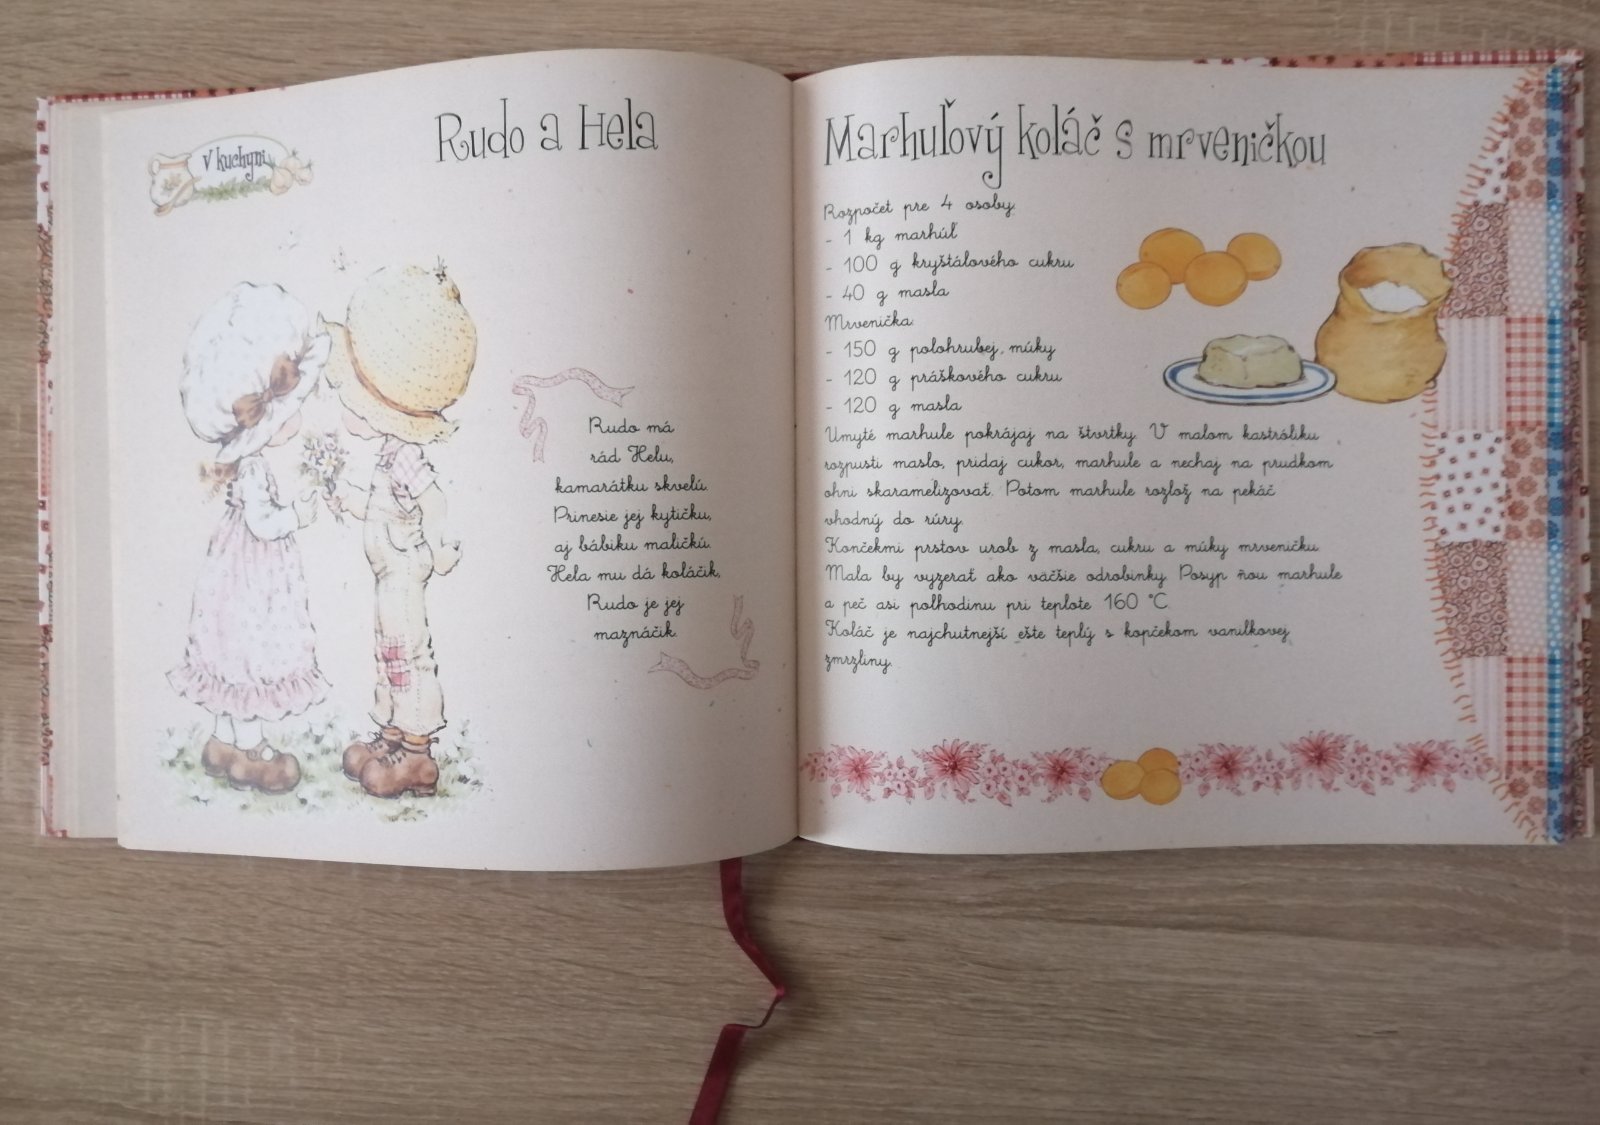 v kuchyni
Rudo a Hela
Rudo má
rád Helu,
kamarátku skvelú.
Prinesie jej kytičku,
aj bábiku maličkú.
Hela mu dá koláčik,
Rudo je jej
maznáčik.
Marhuľový koláč s mrveničkou
Rozpočet pre 4 osoby:
- 1 kg marhúľ
- 100 g kryštálového cukru
- 40 g masla
Mrvenička:
- 150 g polohrubej múky
- 120 g práškového cukru
- 120 g masla
Umyté marhule pokrájaj na štvrtky. V malom kastróliku
rozpusti maslo, pridaj cukor, marhule a nechaj na prudkom
ohni skaramelizovať. Potom marhule rozlož na pekáč
vhodný do rúry.
Končekmi prstov urob z masla, cukru a múky mrveničku.
Mala by vyzerať ako väčšie odrobinky. Posyp ňou marhule
a peč asi polhodinu pri teplote 160 °C.
Koláč je najchutnejší ešte teplý s kopčekom vanilkovej
zmrzliny.